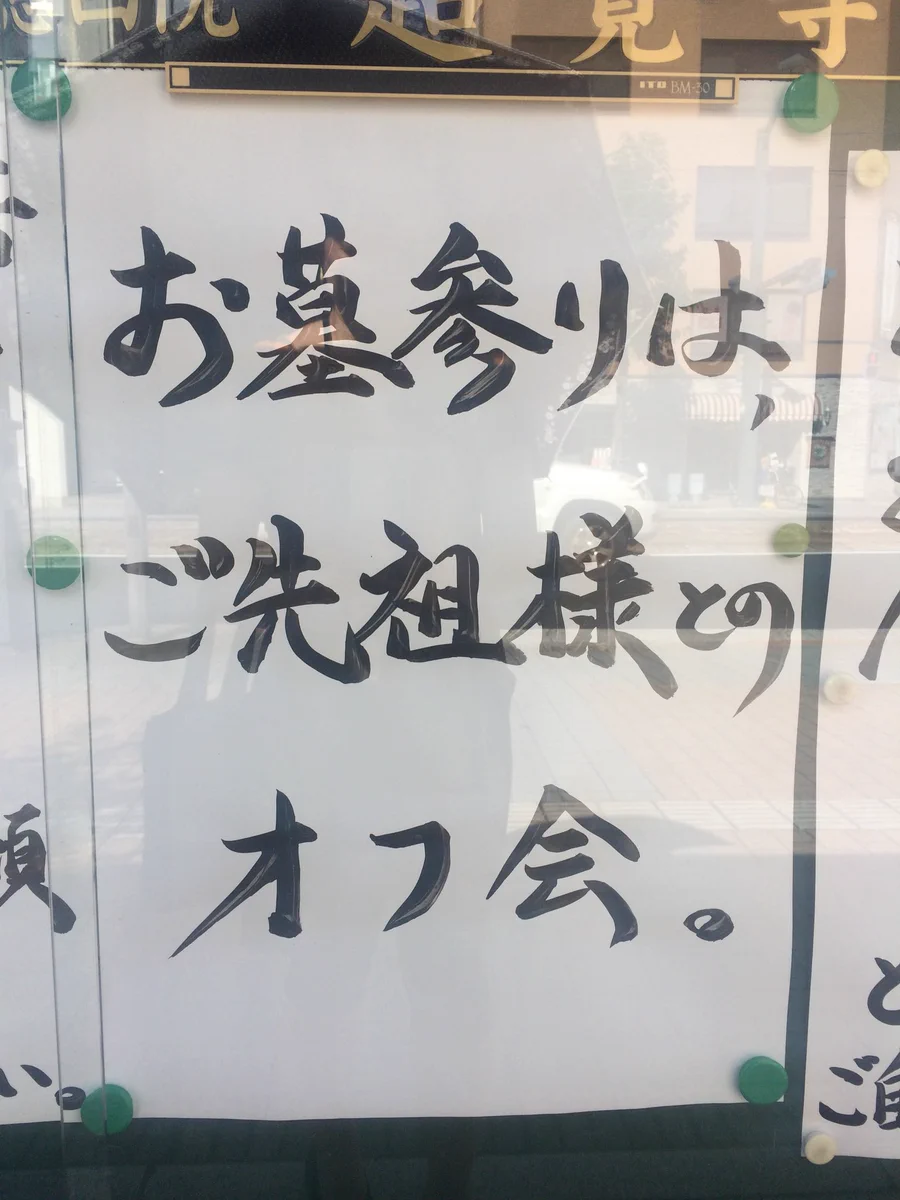 超覚寺
ITO BM-30
お墓参りは、
ご先祖様との
オフ会。
願
い。
と